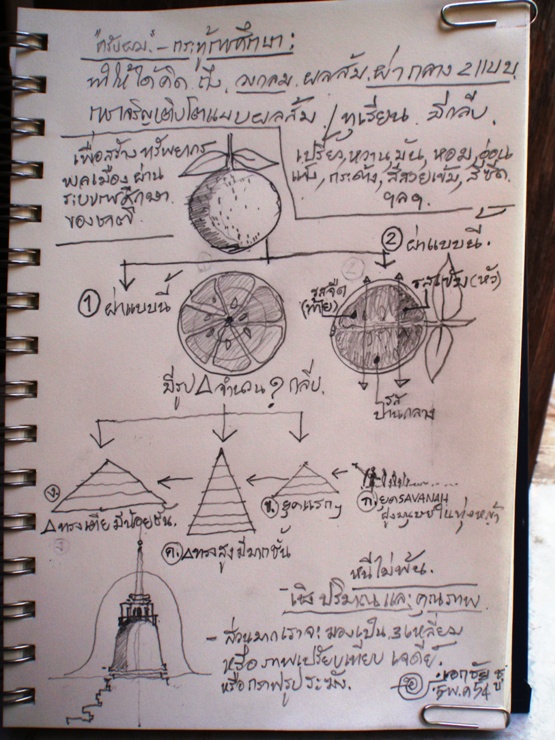 "ครับผม".- กระทู้การศึกษา:
ทำให้ได้คิด ถึง วงกลม ผลส้ม ผ่ากลาง 2 แบบ
การเจริญเติบโตแบบผลส้ม / ทุเรียน มีกลีบ.
เพื่อสร้างทรัพยากร
พลเมือง ผ่าน
ระบบการศึกษา
ของชาติ
เปรี้ยว, หวาน, มัน, หอม, อ่อน
แข็ง, กระด้าง, สีสวยเข้ม, สีซีด.
ฯลฯ.
② ผ่าแบบนี้.
① ผ่าแบบนี้
รสจืด
(ท้าย)
รสเข้ม (หัว)
รส
ปานกลาง
มีรูป △ จำนวน ? กลีบ.
ง.
△ ทรงเตี้ย มีน้อยชั้น.
ค. △ ทรงสูง มีมากชั้น
ข. ยุคแรกๆ
ก. ยุค SAVANAH
ฝูงมนุษย์ในทุ่งหญ้า
หนีไม่พ้น.
เชิงปริมาณ และ คุณภาพ
- ส่วนมากเราจะมองเป็น 3 เหลี่ยม
หรือ ภาพเปรียบเทียบ เจดีย์.
หรือกราฟรูประฆัง.
เอกชัย
5 พ.ค 54